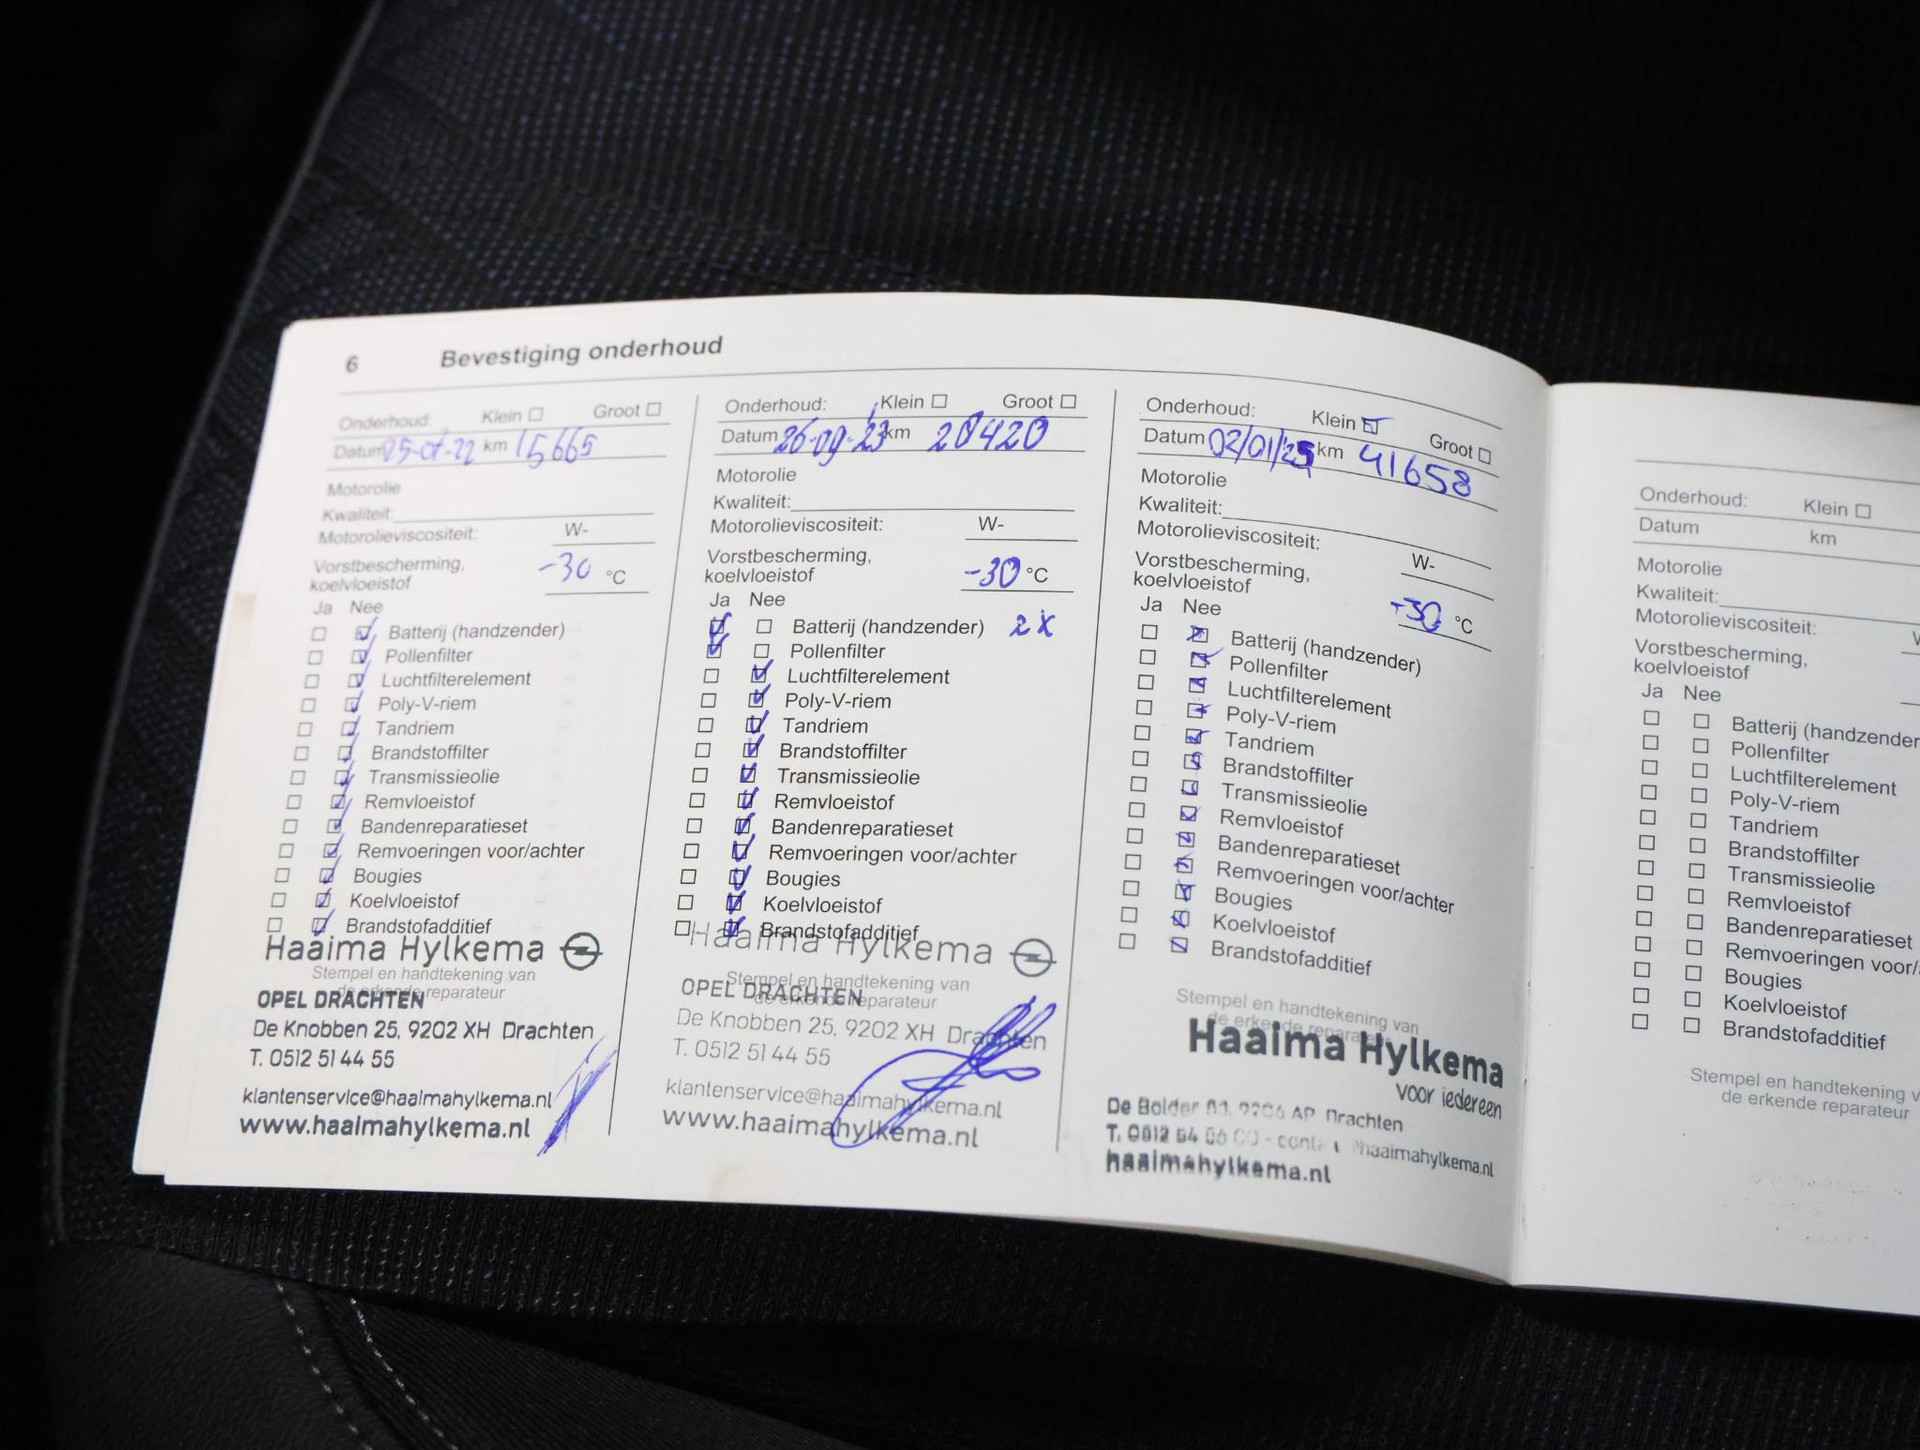 6 Bevestiging onderhoud
Onderhoud: Klein Groot
Datum 05-07-22 km 15665
Motorolie
Kwaliteit:
Motorolieviscositeit: W-
Vorstbescherming,
koelvloeistof -30 °C
Ja Nee
Batterij (handzender)
Pollenfilter
Luchtfilterelement
Poly-V-riem
Tandriem
Brandstoffilter
Transmissieolie
Remvloeistof
Bandenreparatieset
Remvoeringen voor/achter
Bougies
Koelvloeistof
Brandstofadditief
Haaima Hylkema
Stempel en handtekening van
de erkende reparateur
OPEL DRACHTEN
De Knobben 25, 9202 XH Drachten
T. 0512 51 44 55
klantenservice@haaimahylkema.nl
www.haaimahylkema.nl
Onderhoud: Klein Groot
Datum 26-09-23 km 28420
Motorolie
Kwaliteit:
Motorolieviscositeit: W-
Vorstbescherming,
koelvloeistof -30 °C
Ja Nee
Batterij (handzender) 2x
Pollenfilter
Luchtfilterelement
Poly-V-riem
Tandriem
Brandstoffilter
Transmissieolie
Remvloeistof
Bandenreparatieset
Remvoeringen voor/achter
Bougies
Koelvloeistof
Brandstofadditief
Haaima Hylkema
Stempel en handtekening van
de erkende reparateur
OPEL DRACHTEN
De Knobben 25, 9202 XH Drachten
T. 0512 51 44 55
klantenservice@haaimahylkema.nl
www.haaimahylkema.nl
Onderhoud: Klein Groot
Datum 02/01/25 km 41658
Motorolie
Kwaliteit:
Motorolieviscositeit: W-
Vorstbescherming,
koelvloeistof -30 °C
Ja Nee
Batterij (handzender)
Pollenfilter
Luchtfilterelement
Poly-V-riem
Tandriem
Brandstoffilter
Transmissieolie
Remvloeistof
Bandenreparatieset
Remvoeringen voor/achter
Bougies
Koelvloeistof
Brandstofadditief
Stempel en handtekening van
de erkende reparateur
Haaima Hylkema
voor iedereen
De Bolder Drachten
T. haaimahylkema.nl
haaimahylkema.nl
Onderhoud: Klein
Datum km
Motorolie
Kwaliteit:
Motorolieviscositeit:
Vorstbescherming,
koelvloeistof
Ja Nee
Batterij (handzender
Pollenfilter
Luchtfilterelement
Poly-V-riem
Tandriem
Brandstoffilter
Transmissieolie
Remvloeistof
Bandenreparatieset
Remvoeringen voor/
Bougies
Koelvloeistof
Brandstofadditief
Stempel en handtekening v
de erkende reparateur